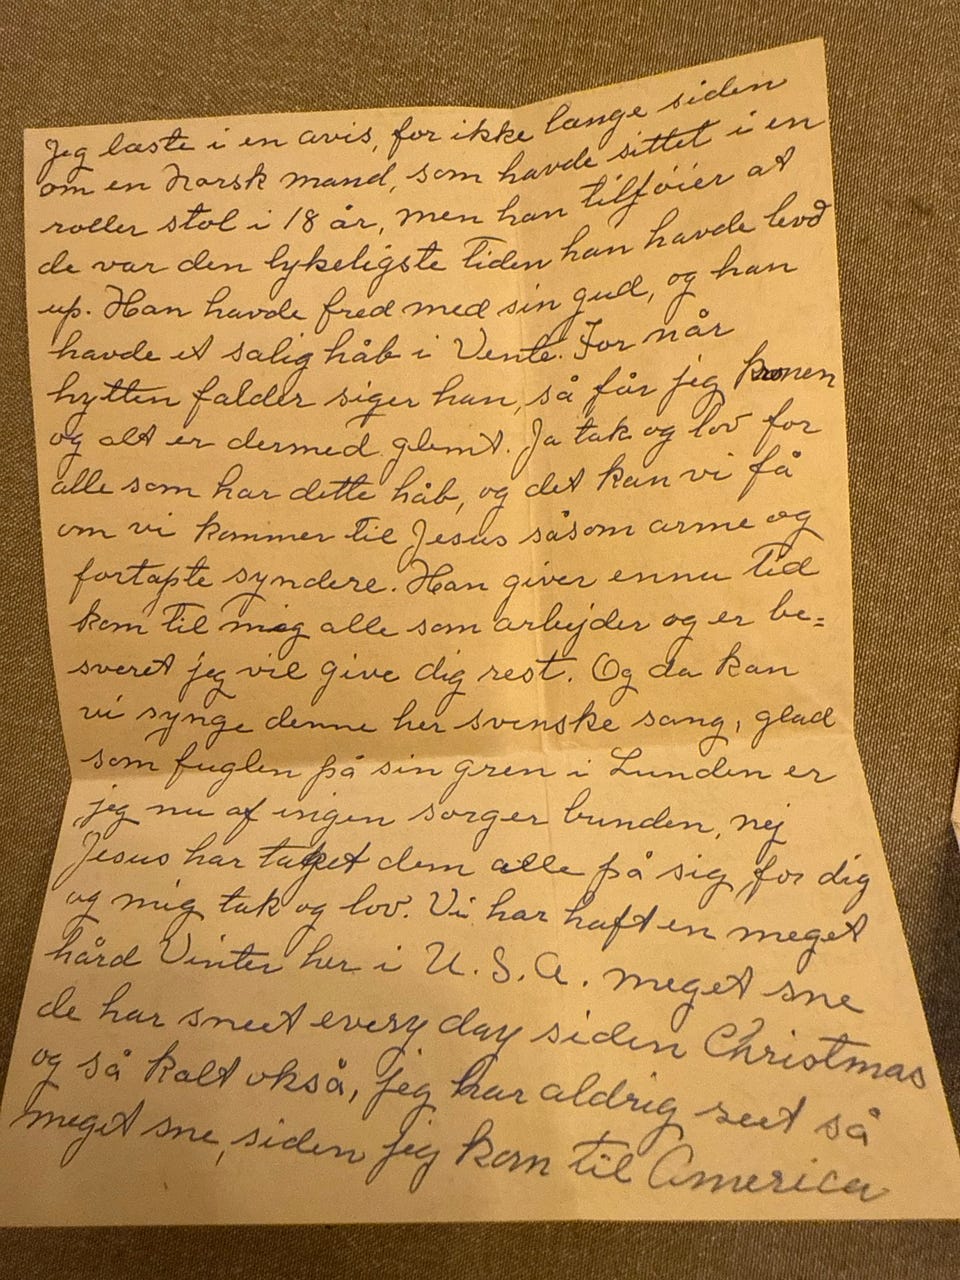 Jeg læste i en avis, for ikke længe siden
om en Norsk mand, som havde sittet i en
roller stol i 18 år, men han tilføier at
de var den lykeligste Tiden han havde levd
up. Han havde fred med sin gud, og han
havde et salig håb i Vente. For når
hytten falder siger han, så får jeg kronen
og alt er dermed glemt. Ja tak og lov for
alle som har dette håb, og det kan vi få
om vi kommer til Jesus såsom arme og
fortapte syndere. Han giver ennu tid
kom til mig alle som arbejder og er be=
sveret jeg vil give dig rest. Og da kan
vi synge denne her svenske sang, glad
som fuglen på sin gren i Lunden er
jeg nu af ingen sorger bunden, nej
Jesus har taget dem alle på sig, for dig
og mig tak og lov. Vi har haft en meget
hård Vinter her i U.S.A. meget sne
de har sneet every day siden Christmas
og så kalt okså, jeg har aldrig seet så
meget sne, siden jeg kom til America